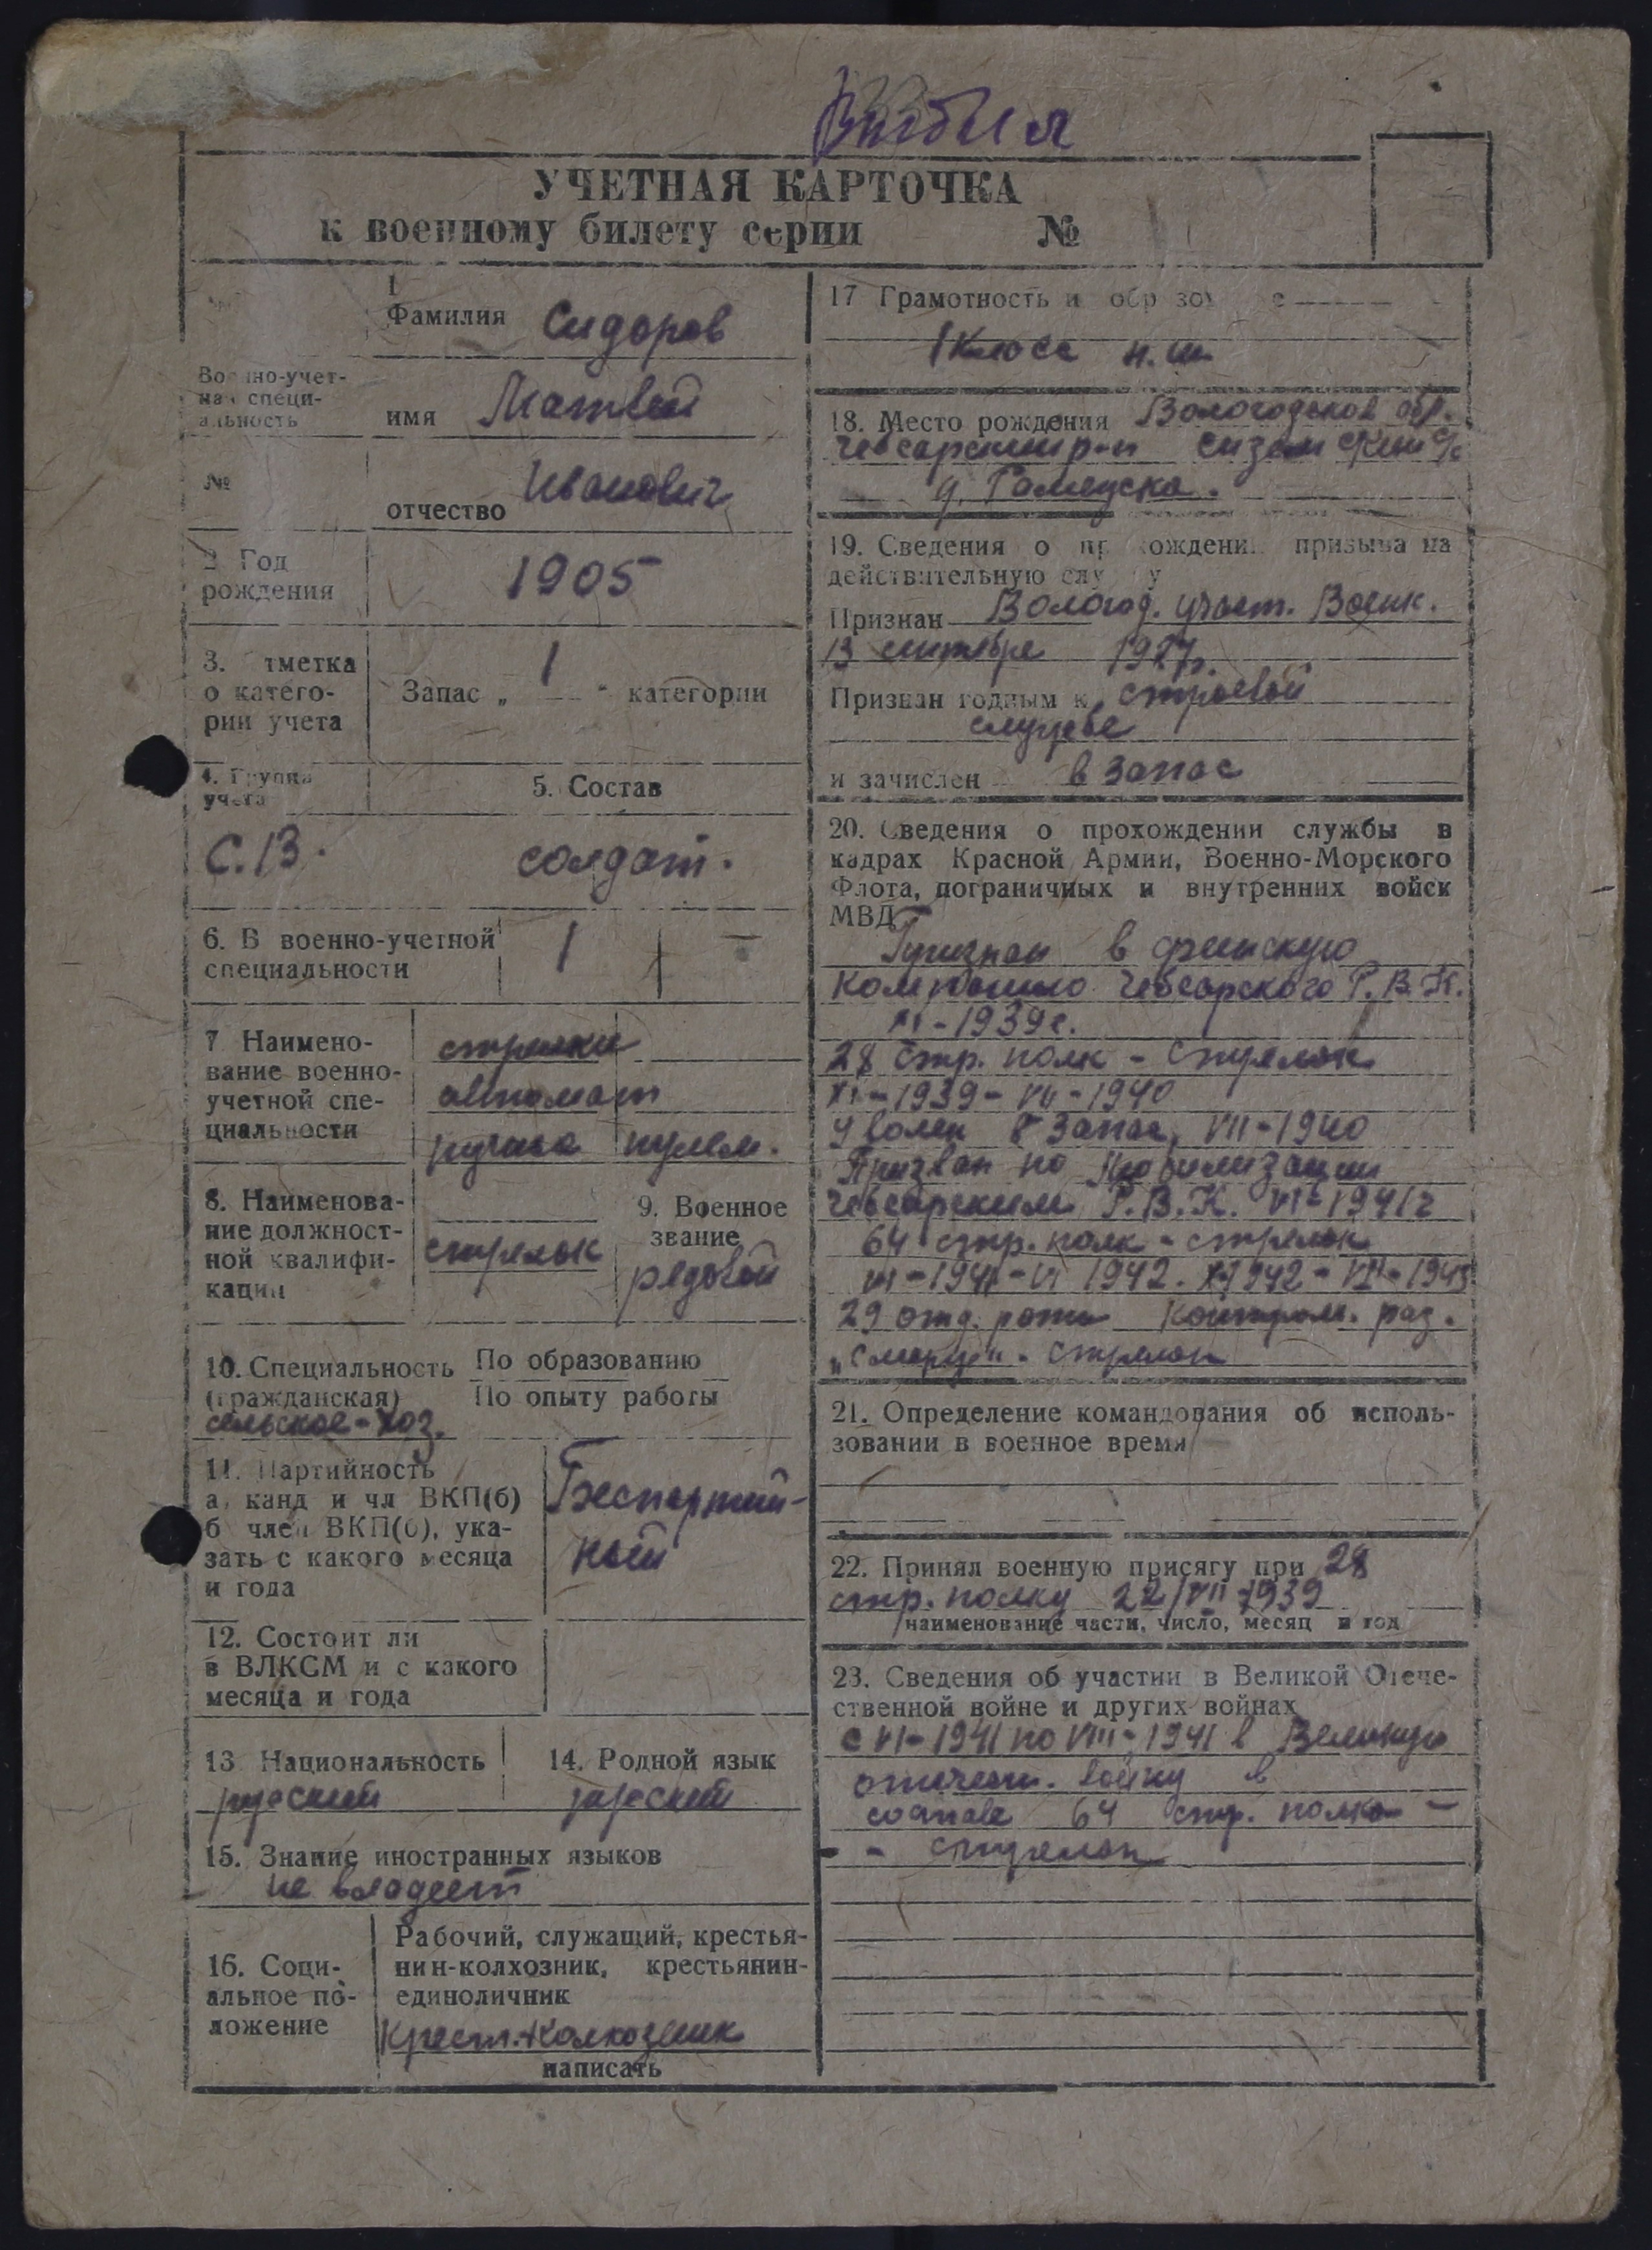 Выбыл
УЧЕТНАЯ КАРТОЧКА
к военному билету серии №
1
Фамилия Сидоров
Военно-учет-
ная специ-
альность
имя Матвей
№
отчество Иванович
2. Год
рождения
1905
3. Отметка
о катего-
рии учета
Запас „ 1 " категории
4. Группа
учета
5. Состав
С.13. солдат.
6. В военно-учетной
специальности
1 —
7 Наимено-
вание военно-
учетной спе-
циальности
стрелки
автомат
ручные пулем.
8. Наименова-
ние должност-
ной квалифи-
кации
стрелок
9. Военное
звание
рядовой
10. Специальность
(гражданская)
По образованию
По опыту работы
сельское-хоз.
11. Партийность
а, канд и чл ВКП(б)
б член ВКП(б), ука-
зать с какого месяца
и года
Беспартий-
ный
12. Состоит ли
в ВЛКСМ и с какого
месяца и года
13 Национальность
русский
14. Родной язык
русский
15. Знание иностранных языков
не владеет
16. Соци-
альное по-
ложение
Рабочий, служащий, крестья-
нин-колхозник, крестьянин-
единоличник
Крест. колхозник
написать
17 Грамотность и образование
1 класс н.ш.
18. Место рождения Вологодской обл.
Чебсарский р-н Сиземский с/с
д.
19. Сведения о прохождении призыва на
действительную службу
Признан Вологод. участ. Военк.
13 сентября 1927г.
Признан годным к строевой
службе
и зачислен в запас
20. Сведения о прохождении службы в
кадрах Красной Армии, Военно-Морского
Флота, пограничных и внутренних войск
МВД
Призван в финскую
компанию Чебсарского Р.В.К.
XI-1939г.
28 стр. полк - стрелок
XI-1939-VII-1940
Уволен в запас, VII-1940
Призван по мобилизации
Чебсарским Р.В.К. VI-1941г
64 стр. полк - стрелок
1942.
29 отд. рота контрол. раз.
стрелок
21. Определение командования об исполь-
зовании в военное время
22. Принял военную присягу при 28
стр. полку 22/VII 1939
наименование части, число, месяц и год
23. Сведения об участии в Великой Отече-
ственной войне и других войнах
с VI-1941 по VIII-1941 в Великую
отечест. войну в
составе 64 стр. полка -
- стрелок